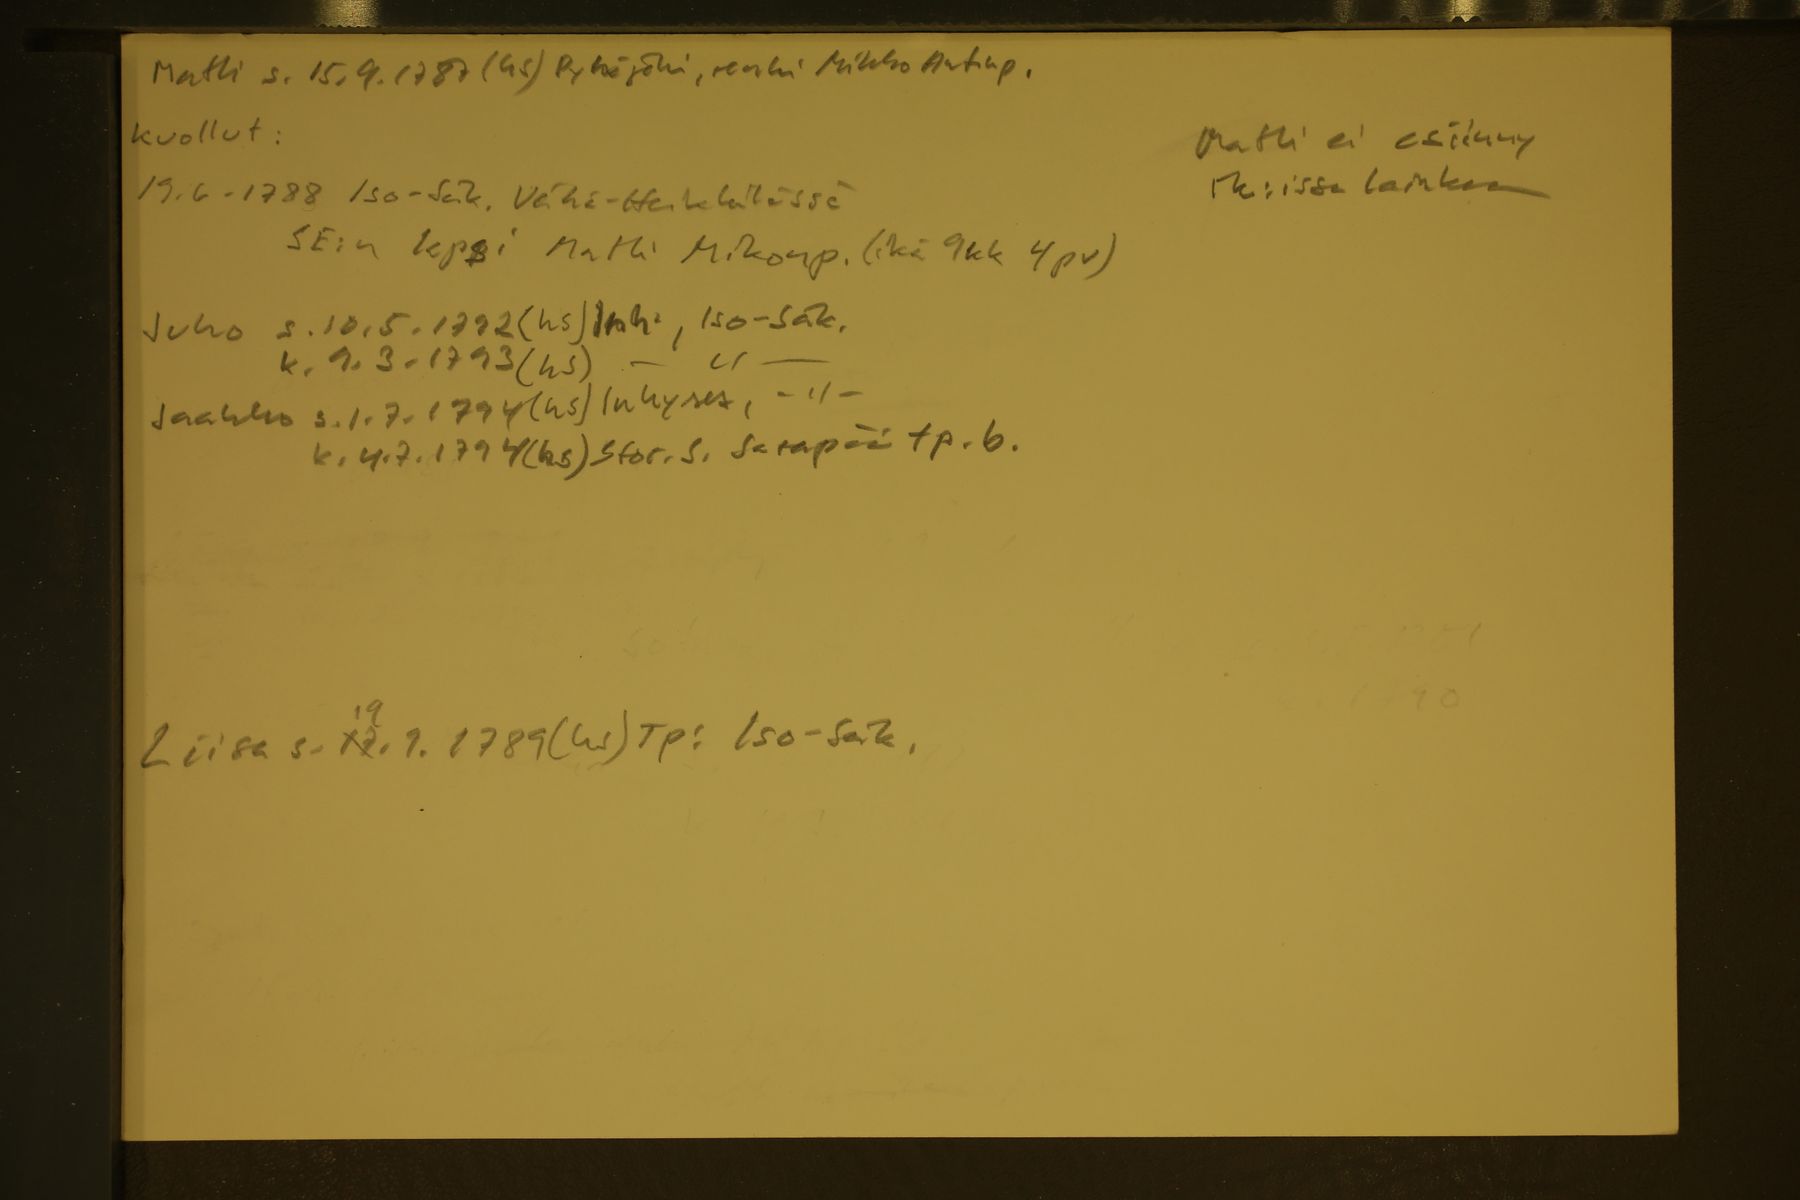 Matti s. 15.9.1787 (ks) Pyhäjoki, renki Mikko Antinp.
kuollut:
19.6.1788 Iso-Säk. Vähä-Heikkilässä
SE:n lapsi Matti Mikonp. (ikä 9kk 4pv)
Matti ei esiinny
rk:issa lainkaan
Juho s. 10.5.1792 (ks) Inh., Iso-Säk.
k. 9.3.1793 (ks) — " —
Jaakko s. 1.7.1794 (ks) Inhyses, -"-
k. 4.7.1794 (ks) Stor.S. Sarapää tp. b.
19
Liisa s. 17.9.1789 (ks) Tp: Iso-Säk.